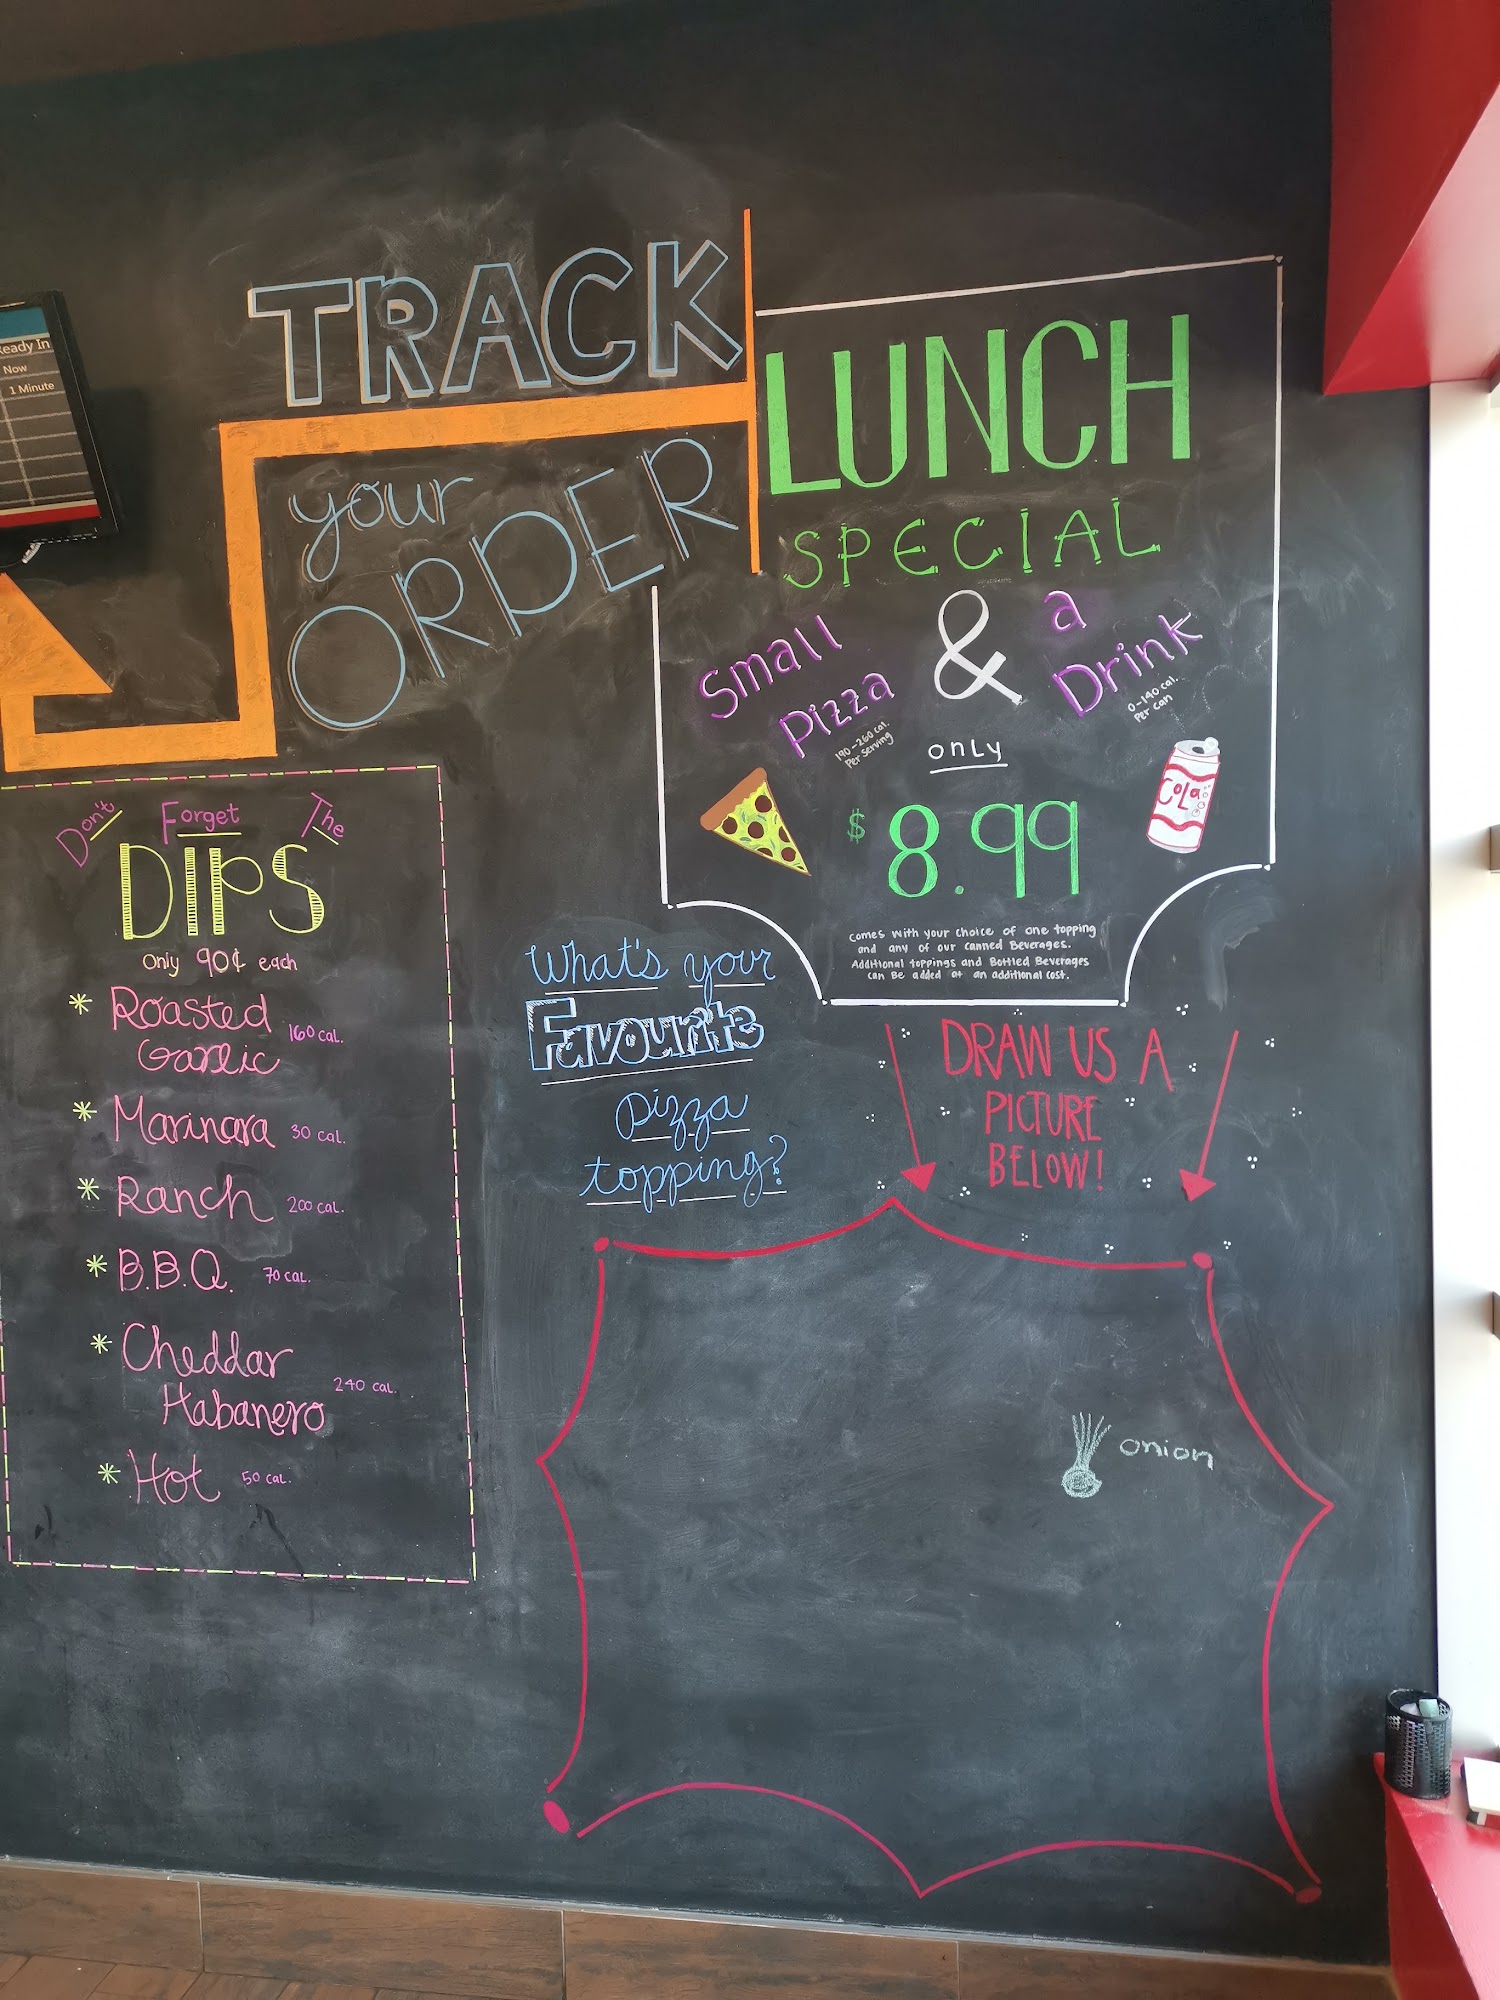 Ready In
Now
1 Minute
TRACK
your
ORDER
LUNCH
SPECIAL
Small
Pizza
190-260 cal.
Per Serving
&
a
Drink
0-140 cal.
Per can
only
$8.99
Cola
Comes with your choice of one topping
and any of our canned Beverages.
Additional toppings and Bottled Beverages
can Be added at an additional cost.
Don't Forget The
DIPS
Only 90¢ each
* Roasted
Garlic 160 cal.
* Marinara 30 cal.
* Ranch 200 cal.
* B.B.Q. 70 cal.
* Cheddar
Habanero 240 cal.
* Hot 50 cal.
What's your
Favourite
pizza
topping?
DRAW US A
PICTURE
BELOW!
onion